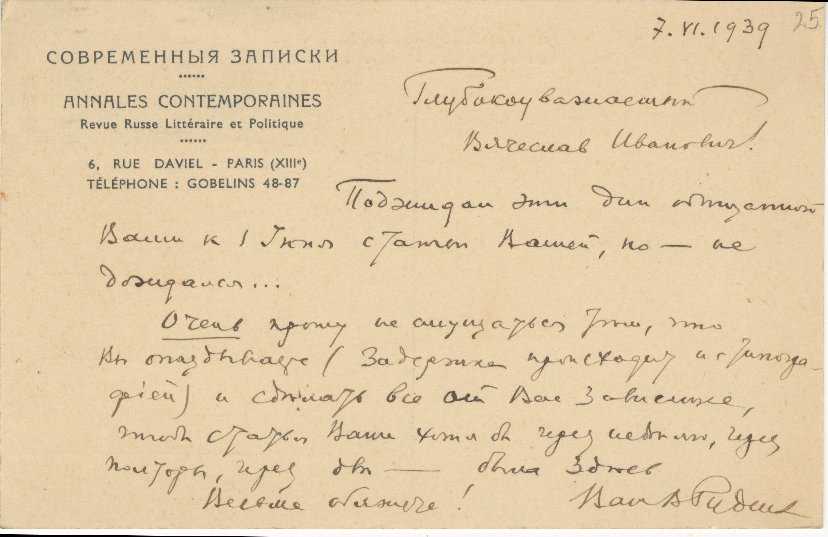 7.VI.1939
25
СОВРЕМЕННЫЯ ЗАПИСКИ
ANNALES CONTEMPORAINES
Revue Russe Littéraire et Politique
6, RUE DAVIEL - PARIS (XIIIe)
TÉLÉPHONE : GOBELINS 48-87
Глубокоуважаемый
Вячеслав Иванович!
Поджидал эти дни обещанной
Вами к 1 Июня статьи Вашей, но — не
дождался...
Очень прошу не смущаться этим, что
Вы опаздываете (Задержка происходит и с типогра-
фіей) и сдѣлать все от Вас зависящее,
чтобы статья Ваша хотя бы через недѣлю, через
полторы, через двѣ — была здѣсь
Весьма обяжете!
Ваш В Руднев